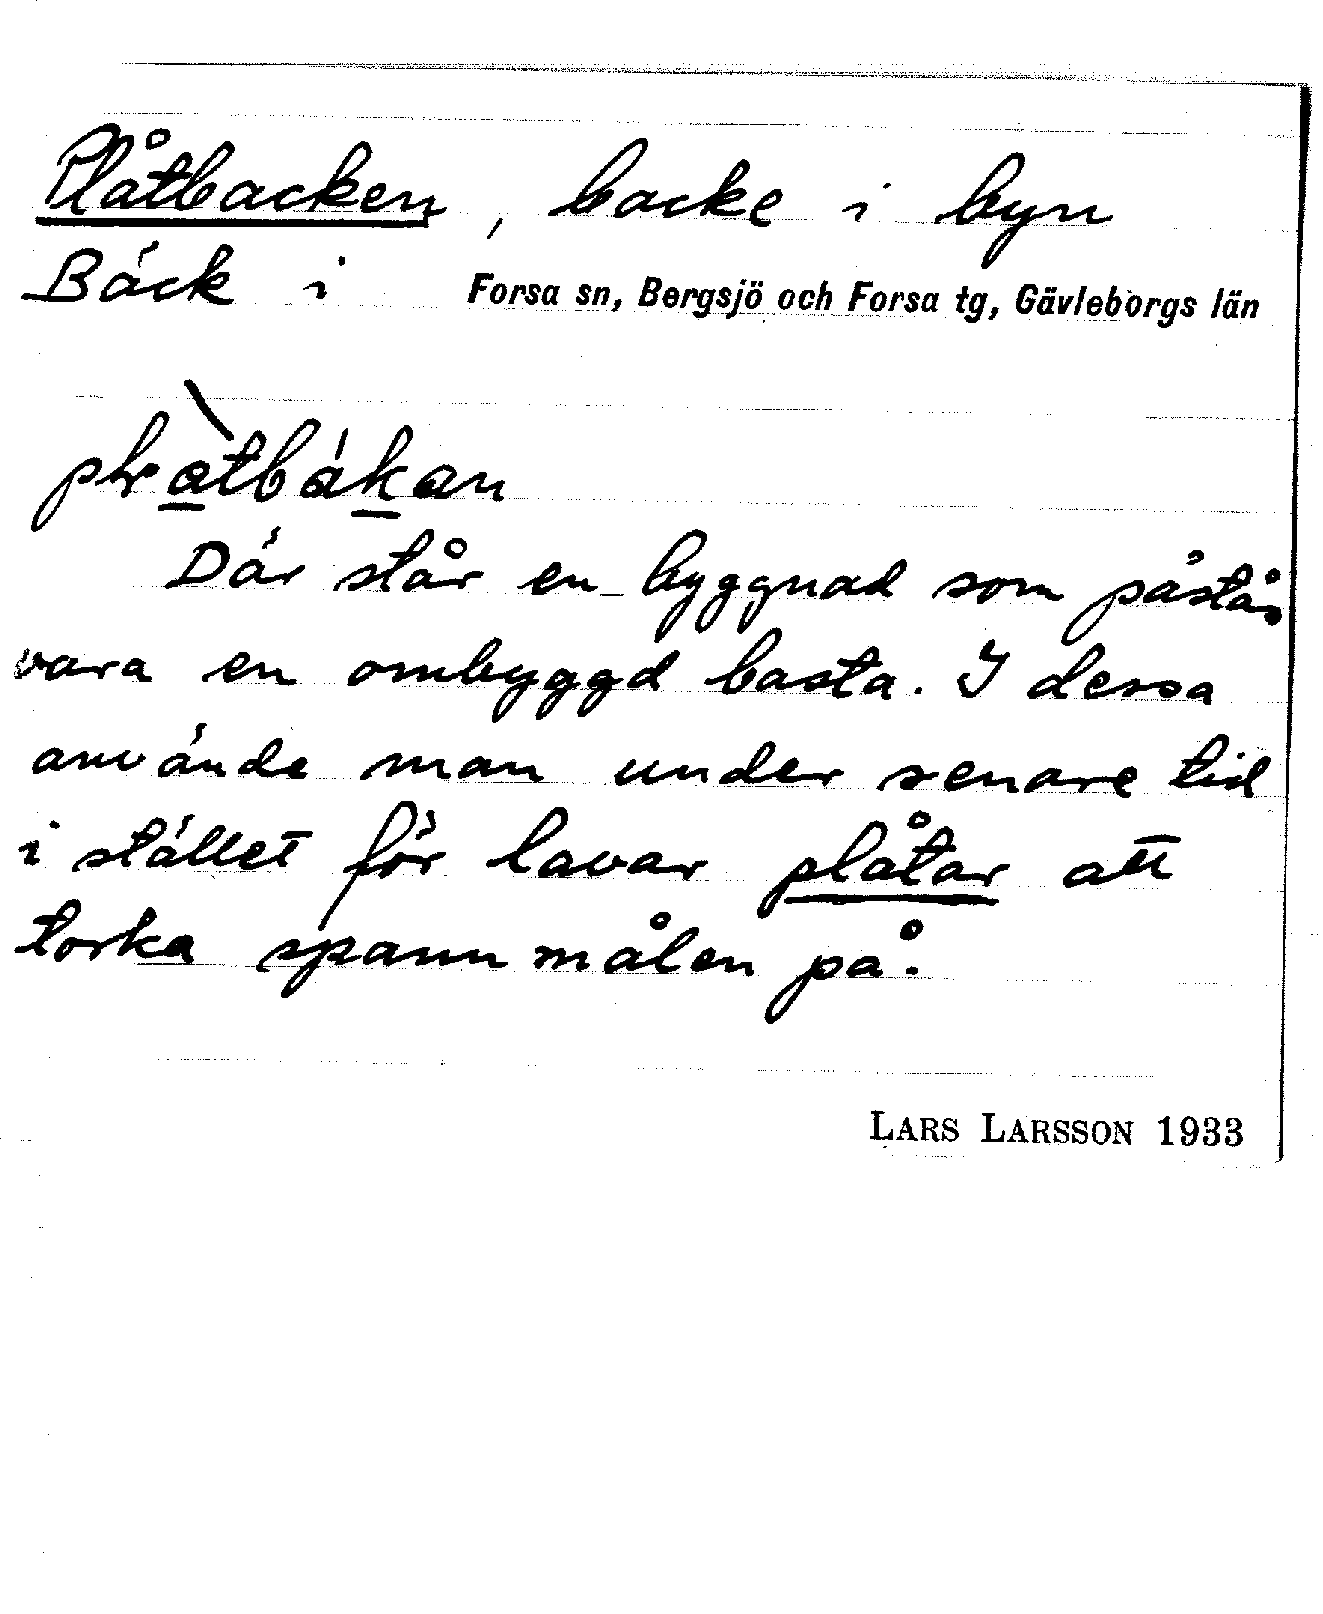 Plåtbacken, backe i byn
Bäck i Forsa sn, Bergsjö och Forsa tg, Gävleborgs län
Där står en byggnad som påstås
vara en ombyggd basta. I dessa
använde man under senare tid
i stället för lavar plåtar att
torka spannmålen på.
LARS LARSSON 1933